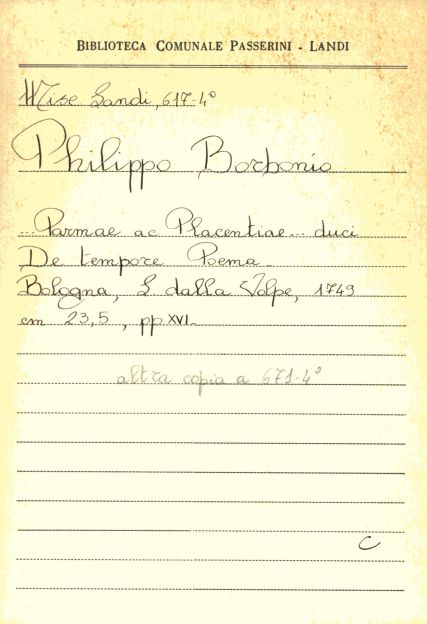 BIBLIOTECA COMUNALE PASSERINI - LANDI
Misc. Landi, 617-4°
Philippo Borbonio
... Parmae ac Placentiae... duci
De tempore Poema -
Bologna, L. dalla Volpe, 1749
cm 23,5, pp. XVI -
altra copia a 671-4°
C